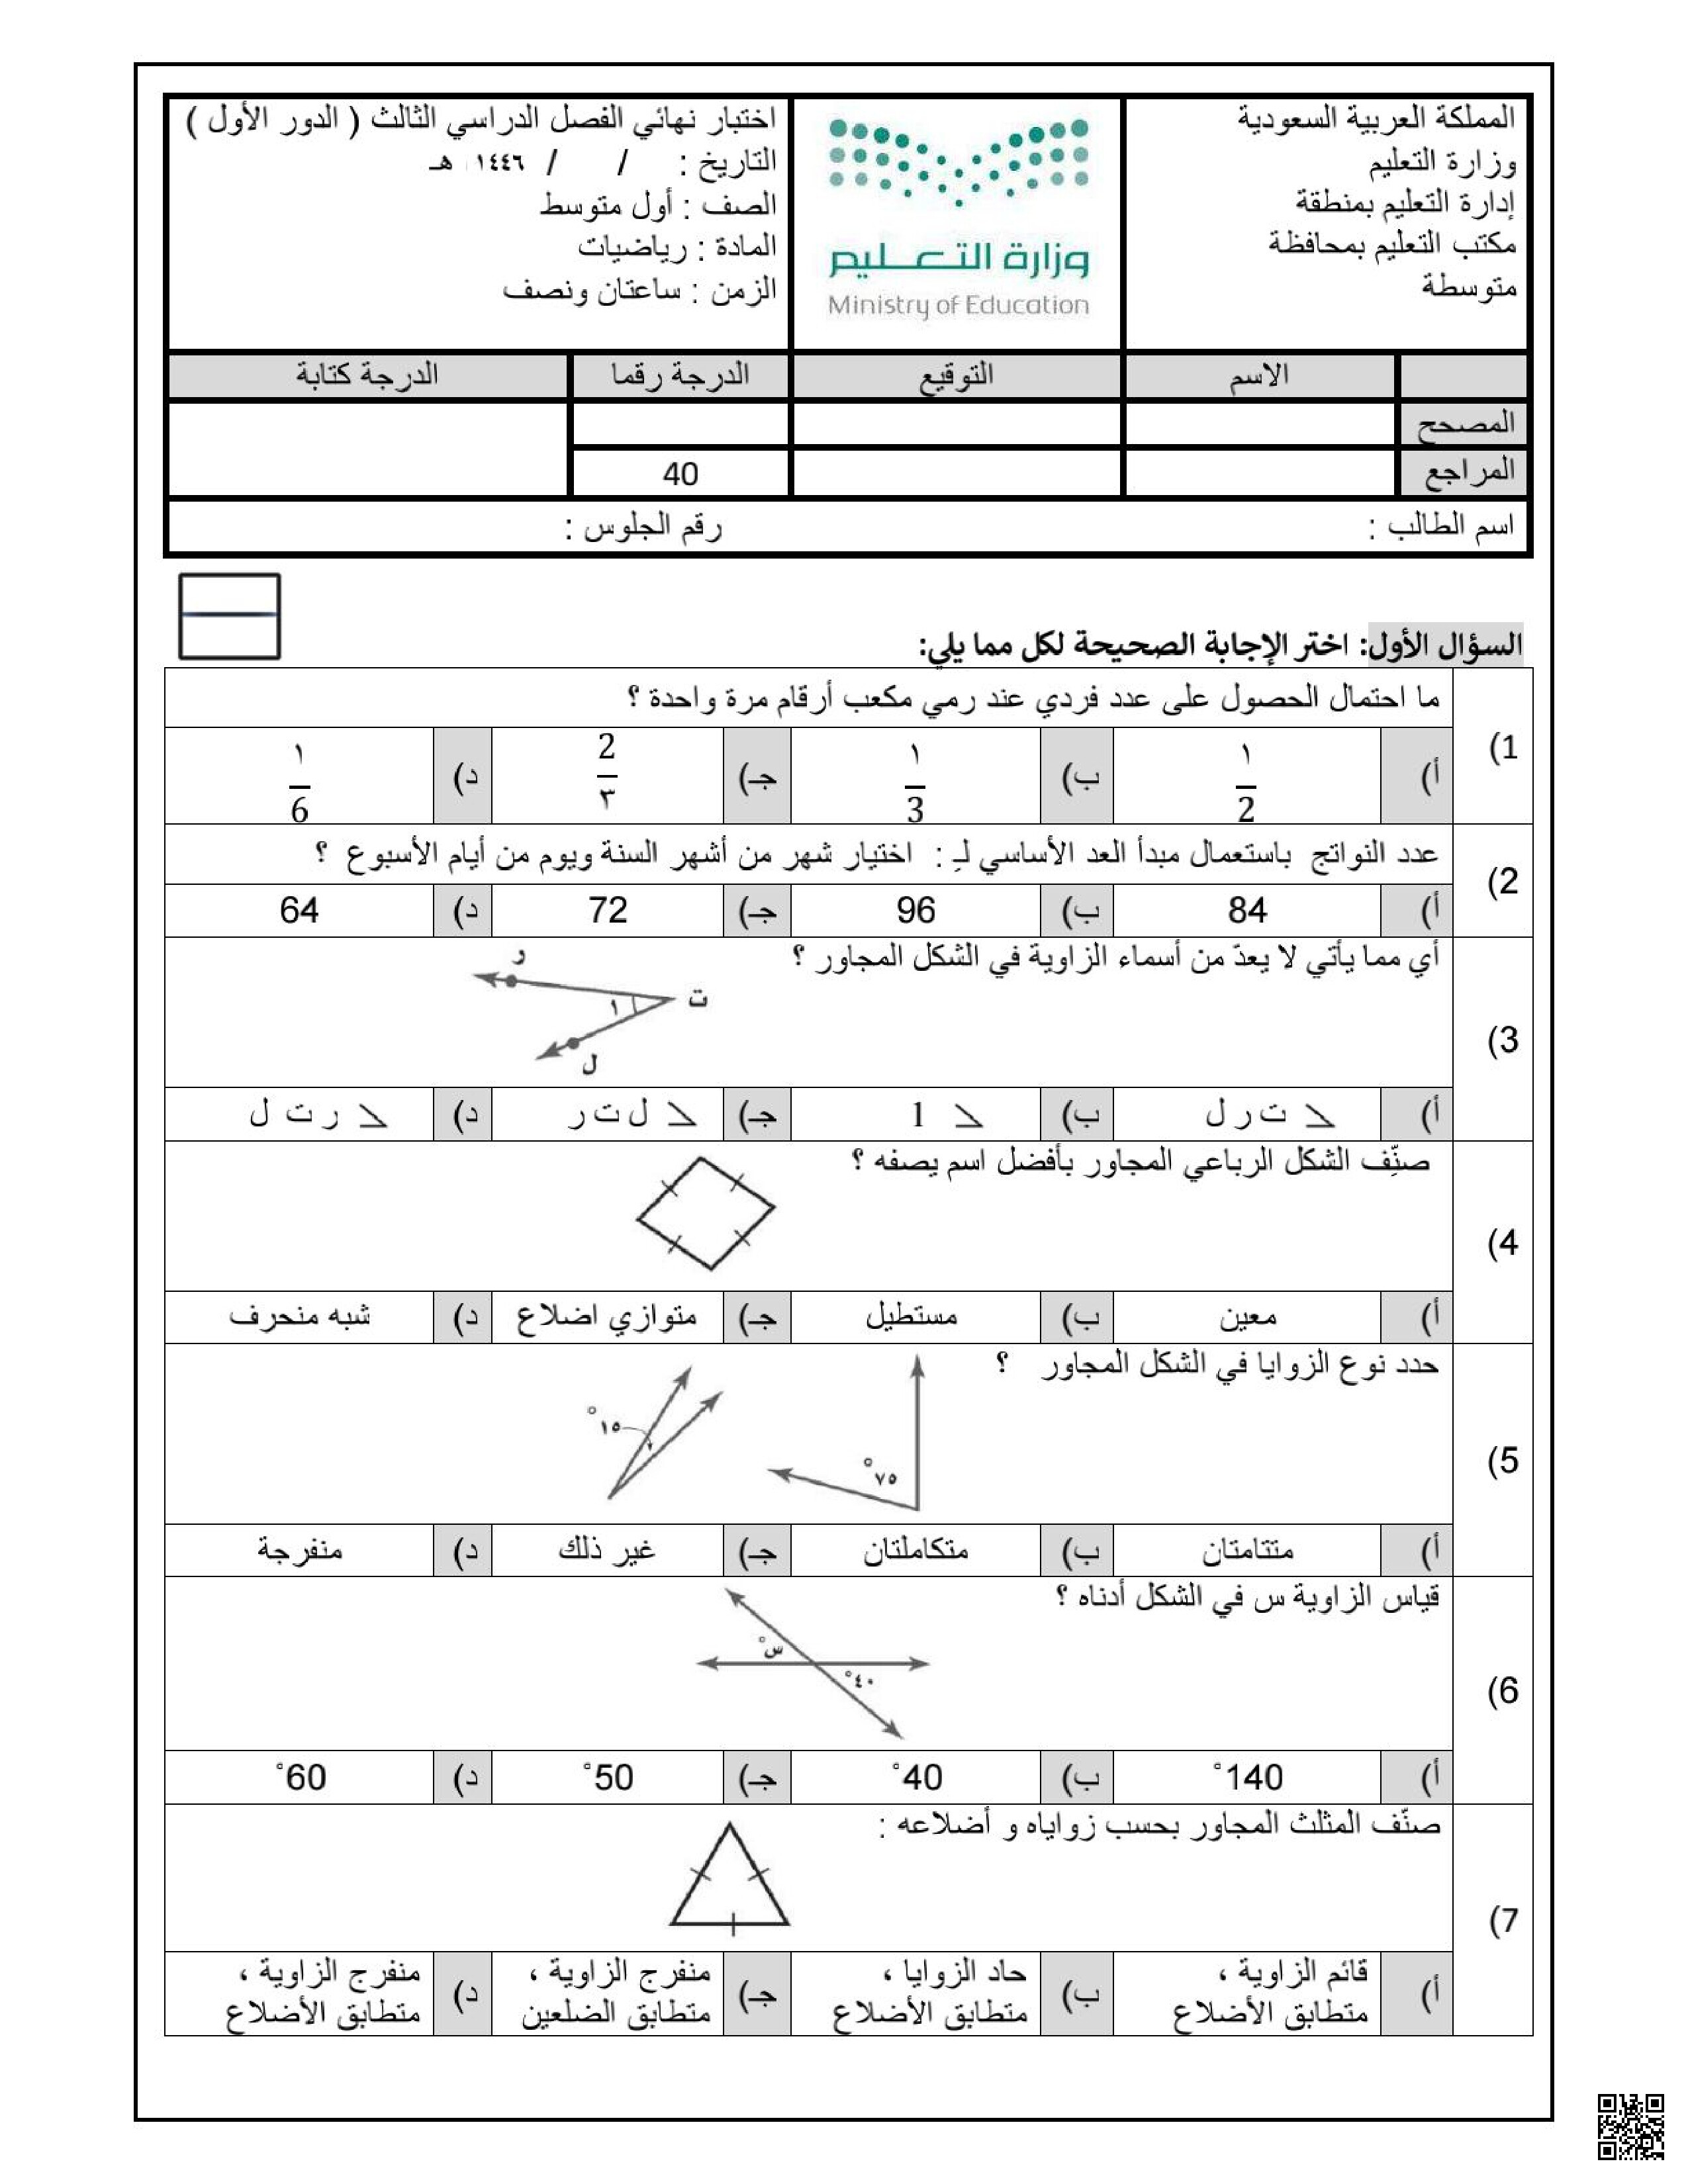 المملكة العربية السعودية
وزارة التعليم
إدارة التعليم بمنطقة
مكتب التعليم بمحافظة
متوسطة
وزارة التعليم
Ministry of Education
اختبار نهائي الفصل الدراسي الثالث ( الدور الأول )
التاريخ : / / ١٤٤٦ هـ
الصف : أول متوسط
المادة : رياضيات
الزمن : ساعتان ونصف
الاسم التوقيع الدرجة رقما الدرجة كتابة
المصحح
المراجع 40
اسم الطالب : رقم الجلوس :
السؤال الأول: اختر الإجابة الصحيحة لكل مما يلي:
1) ما احتمال الحصول على عدد فردي عند رمي مكعب أرقام مرة واحدة ؟
أ) ١/2 ب) ١/3 جـ) 2/٣ د) ١/6
2) عدد النواتج باستعمال مبدأ العد الأساسي لـِ : اختيار شهر من أشهر السنة ويوم من أيام الأسبوع ؟
أ) 84 ب) 96 جـ) 72 د) 64
3) أي مما يأتي لا يعدّ من أسماء الزاوية في الشكل المجاور ؟
ر
ت
١
ل
أ) ∠ ت ر ل ب) ∠ 1 جـ) ∠ ل ت ر د) ∠ ر ت ل
4) صنِّف الشكل الرباعي المجاور بأفضل اسم يصفه ؟
أ) معين ب) مستطيل جـ) متوازي اضلاع د) شبه منحرف
5) حدد نوع الزوايا في الشكل المجاور ؟
٧٥°
١٥°
أ) متتامتان ب) متكاملتان جـ) غير ذلك د) منفرجة
6) قياس الزاوية س في الشكل أدناه ؟
س°
٤٠°
أ) 140° ب) 40° جـ) 50° د) 60°
7) صنّف المثلث المجاور بحسب زواياه و أضلاعه :
أ) قائم الزاوية ، متطابق الأضلاع ب) حاد الزوايا ، متطابق الأضلاع جـ) منفرج الزاوية ، متطابق الضلعين د) منفرج الزاوية ، متطابق الأضلاع